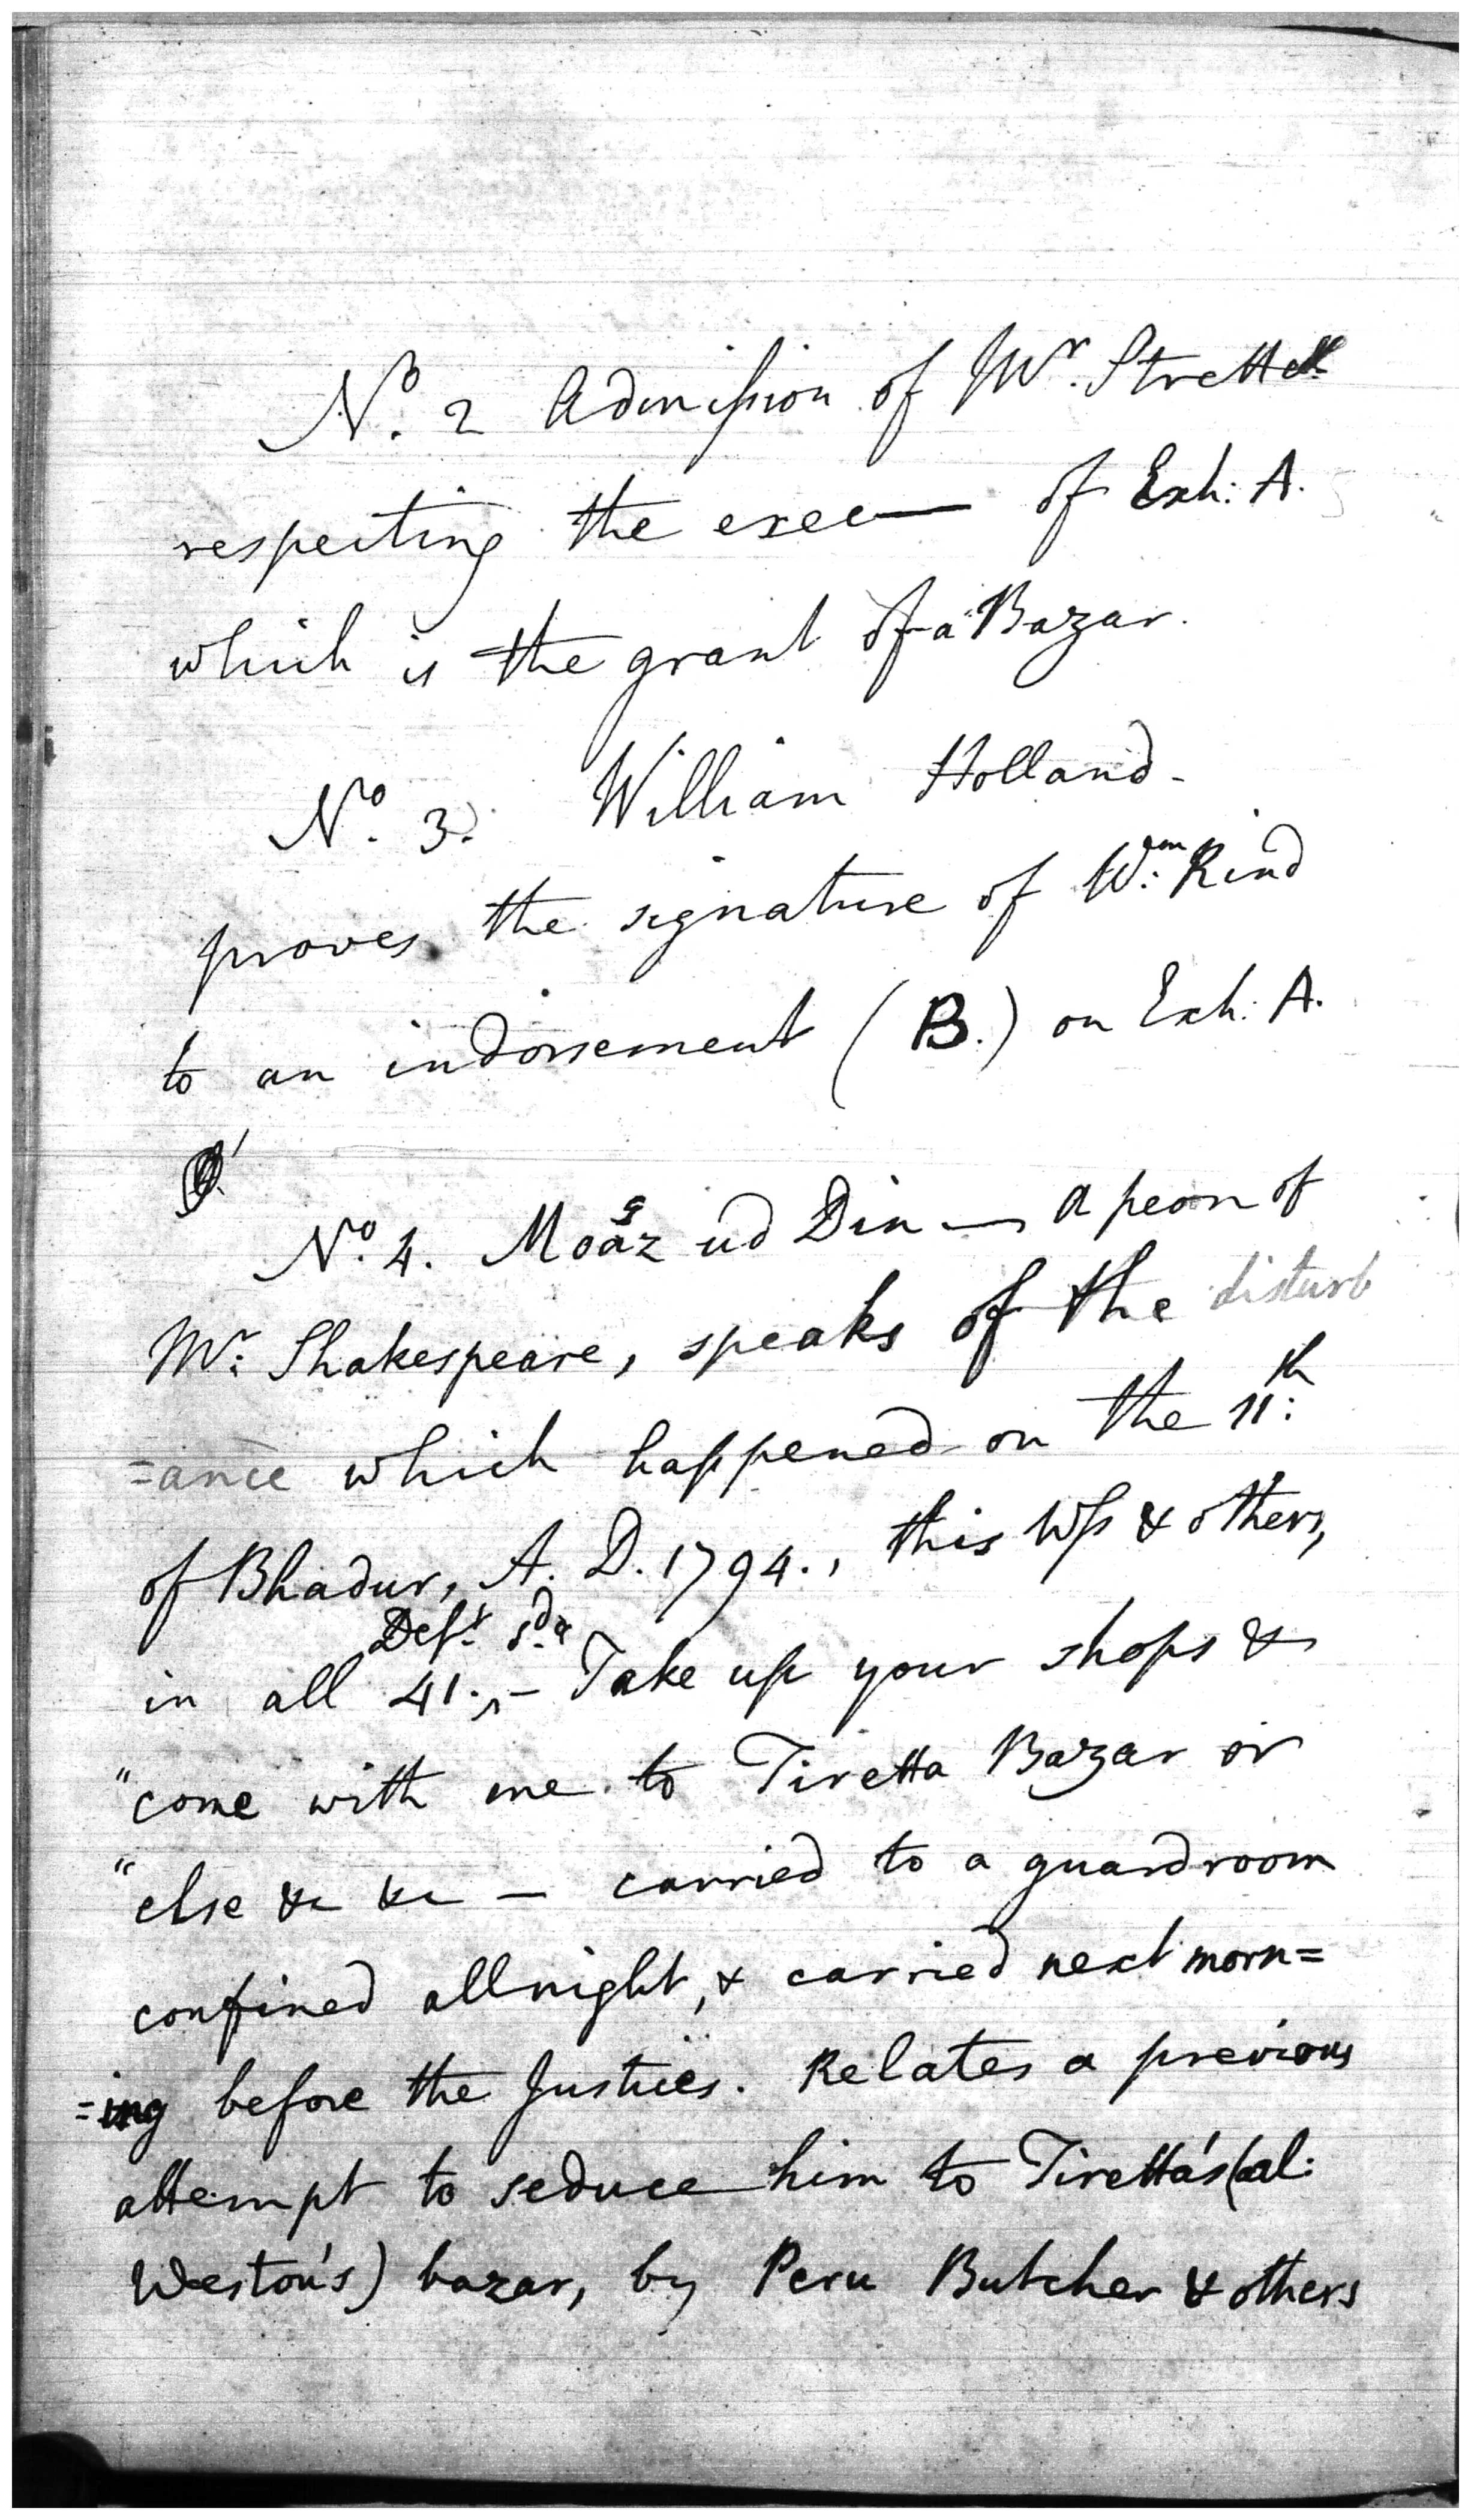 No. 2 Admission of Mr. Strettell
respecting the exec— of Exh: A.
which is the grant of a Bazar.
No. 3. William Holland-
proves the signature of Wm: Rind
to an indorsement (B.) on Exh: A.
No. 4. Moaz ud Din — a peon of
Mr: Shakespeare, speaks of the disturb
=ance which happened on the 11th:
of Bhadur, A. D. 1794., this Wss & others,
Deft: sd:
in all 41., - Take up your shops &
"come with me to Tiretta Bazar or
"else &c &c — carried to a guardroom
confined all night, & carried next morn=
=ing before the Justices. Relates a previous
attempt to seduce him to Tiretta's (al:
Weston's) bazar, by Peru Butcher & others